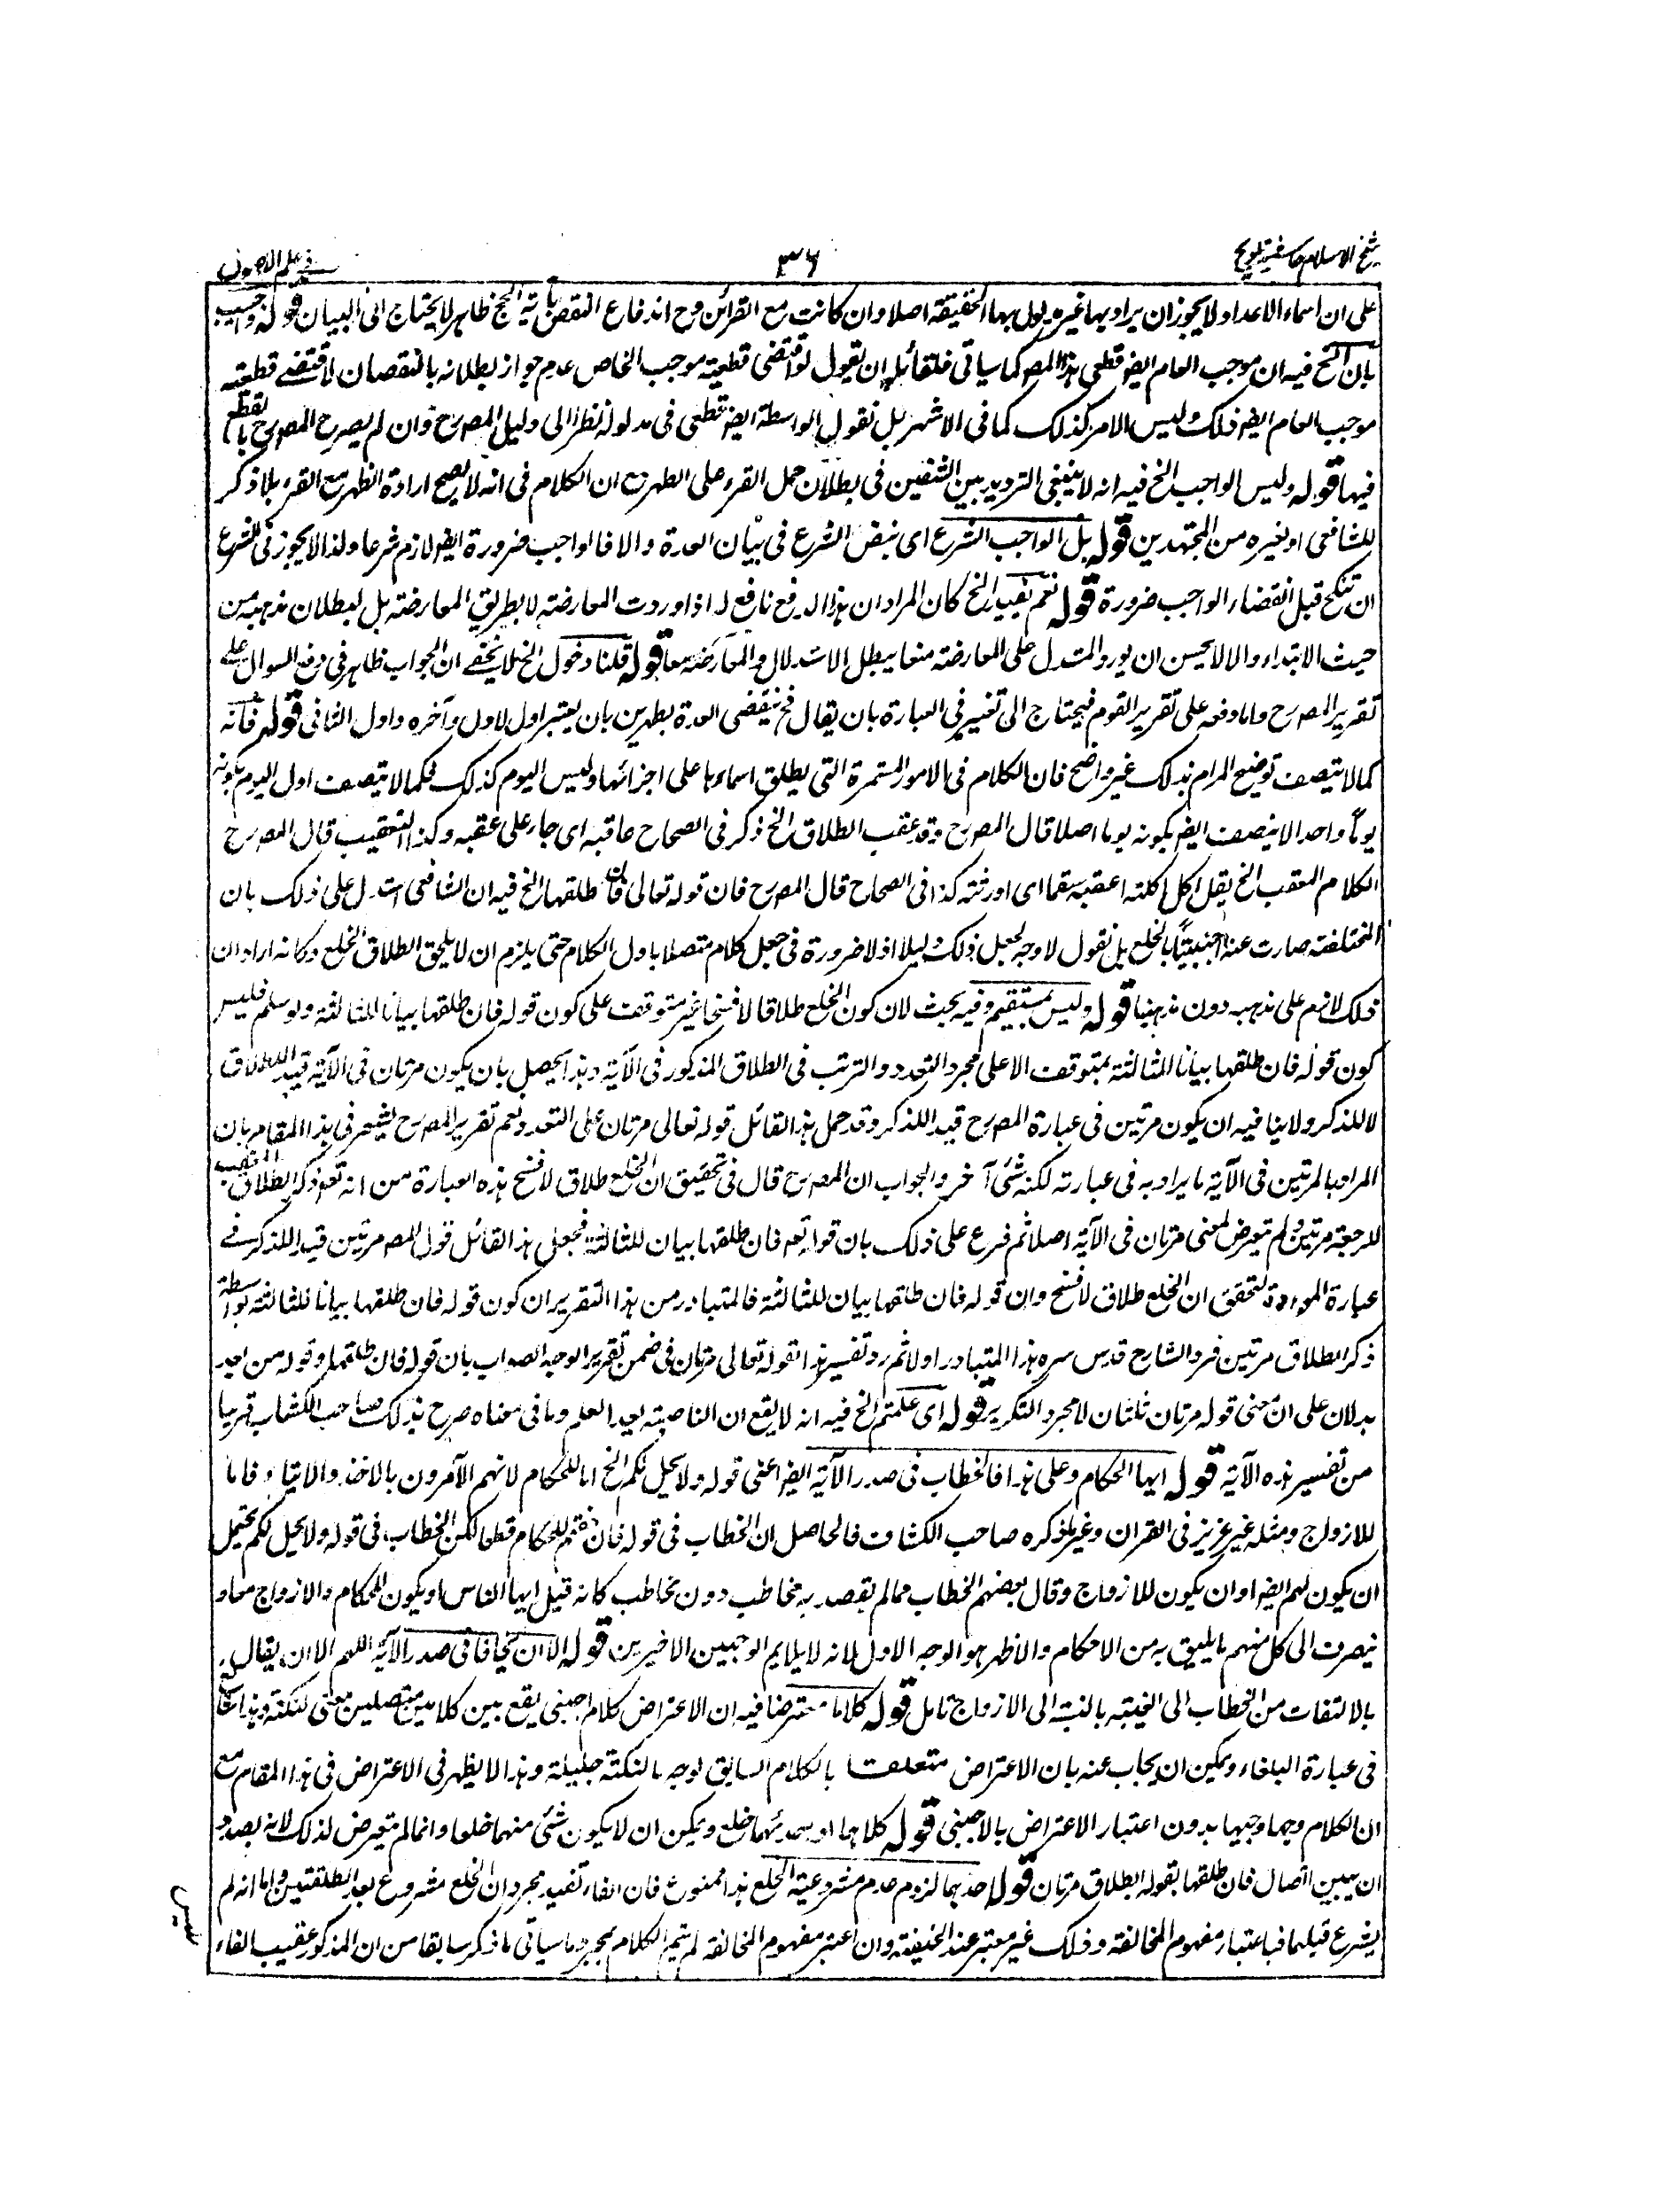 شيخ الاسلام حاشية تلويح
٣٦
في علم الاصول
على ان اسماء الاعداد لا يجوز ان يراد بها غير مدلولها الحقيقة اصلا وان كانت مع القرائن وح اندفاع النقض بآية الحج ظاهر لا يحتاج الى البيان قوله واجيب
بان الخ فيه ان موجب العام ايضا قطعي عند المص كما سياتي فلقائل ان يقول لو اقتضى قطعية موجب الخاص عدم جواز بطلانه بالنقصان لاقتضى قطعية
موجب العام ايضا ذلك وليس الامر كذلك كما في الاشهر بل نقول الواسطة ايضا قطعي في مدلوله نظرا الى دليل المص رح وان لم يصرح المص رح بالقطع
فيها قوله وليس الواجب الخ فيه انه لا ينبغي الترديد بين الشقين في بطلان حمل القرء على الطهر مع ان الكلام في انه لا يصح ارادة الطهر مع القرء بلا ذكر
للشافعي او لغيره من المجتهدين قوله بل الواجب الشرع اى بنص الشرع في بيان العدة والا فالواجب ضرورة ايضا لازم شرعا ولذا لا يجوز في الشرع
ان تنكح قبل انقضاء الواجب ضرورة قوله نعم يفيد الخ كان المراد ان هذا الدفع نافع له اذا وردت المعارضة لا بطريق المعارضة بل لبطلان مذهبه من
حيث الابتداء والا لا يحسن ان يورد المستدل على المعارضة منعا يبطل الاستدلال والمعارضة معا قوله قلنا دخول الخ لا يخفى ان الجواب ظاهر في دفع السوال على
تقرير المص رح واما دفعه على تقرير القوم فيحتاج الى تغيير في العبارة بان يقال فح تنقضي العدة بطهرين بان يعتبر اول الاول وآخره واول الثاني قوله فانه
كما لا يتصف توضيح المرام بذلك غير واضح فان الكلام في الامور المستمرة التي يطلق اسماءها على اجزائها وليس اليوم كذلك فكما لا يتصف اول اليوم بكونه
يوما واحدا لا يتصف ايضا بكونه يوما اصلا قال المص رح وقد عقب الطلاق الخ ذكر في الصحاح عاقبه اى جاء على عقبه وكذا التعقيب قال المص رح
الكلام المعقب الخ يقال اكل اكلة اعقبته سقما اى اورثته كذا في الصحاح قال المص رح فان قوله تعالى فان طلقها الخ فيه ان الشافعي استدل على ذلك بان
المختلعة صارت عنه اجنبيتا بالخلع بل نقول لا وجه لجعل ذلك دليلا اذ لا ضرورة في جعل كلام متصلا باول الكلام حتى يلزم ان لا يلحق الطلاق الخلع وكانه اراد ان
ذلك لازم على مذهبه دون مذهبنا قوله وليس بمستقيم وفيه بحث لان كون الخلع طلاقا لا فسخا غير متوقف على كون قوله فان طلقها بيانا للثالثة ولو سلم فليس
كون قوله فان طلقها بيانا للثالثة بمتوقف الا على مجرد التعدد والترتب في الطلاق المذكور في الآية وهذا يحصل بان يكون مرتان في الآية قيد الطلاق
لا للذكر ولا ينافيه ان يكون مرتين في عبارة المص رح قيد اللذكر وقد حمل هذا القائل قوله تعالى مرتان على التعدد نعم تقرير المص رح يشعر في هذا المقام بان
المراد بالمرتين في الآية ما يراد به في عبارته لكنه شئ آخر والجواب ان المص رح قال في تحقيق ان الخلع طلاق لا فسخ بهذه العبارة من انه تع ذكر الطلاق المعقب
للرجعة مرتين ولم يتعرض لمعنى مرتان في الآية اصلا ثم فرع على ذلك بان قوله تعه فان طلقها بيان للثالثة فجعل هذا القائل قول المص مرتين قيد اللذكر في
عبارة الموردة لتحقق ان الخلع طلاق لا فسخ وان قوله فان طلقها بيان للثالثة فالمتبادر من هذا التقرير ان كون قوله فان طلقها بيانا للثالثة بواسطة
ذكر الطلاق مرتين فرد الشارح قدس سره هذا المتبادر اولا ثم رد تفسير هذا لقوله تعالى مرتان في ضمن تقرير الوجه الصواب بان قوله فان طلقها وقوله من بعد
يدلان على ان معنى قوله مرتان ثنتان لا مجرد التكرير قوله اى علمتم الخ فيه انه لا يقع ان الناصبة بعد العلم وما في معناه صرح بذلك صاحب الكشاف قريبا
من تفسير هذه الآية قوله ايها الحكام وعلى هذا فالخطاب في صدر الآية ايضا اعني قوله ولا يحل لكم الخ اما للحكام لانهم الآمرون بالاخذ والايتاء واما
للازواج ومثله غير عزيز في القران وغيره ذكره صاحب الكشاف فالحاصل ان الخطاب في قوله فان خفتم للحكام قطعا لكن الخطاب في قوله ولا يحل لكم يحتمل
ان يكون لهم ايضا وان يكون للازواج وقال بعضهم الخطاب مما لم يقصد به مخاطب دون مخاطب كانه قيل ايها الناس او يكون للحكام والازواج معا و
يصرف الى كل منهم ما يليق به من الاحكام والاظهر هو الوجه الاول لانه لا يلايم الوجهين الاخيرين قوله الا ان يخافا في صدر الآية اللهم الا ان يقال
بالالتفات من الخطاب الى الغيبة بالنسبة الى الازواج تامل قوله كلاما معترضا فيه ان الاعتراض كلام اجنبي يقع بين كلامين متصلين معنى لنكتة وهذا شائع
في عبارة البلغاء ويمكن ان يجاب عنه بان الاعتراض متعلقـــا بالكلام السابق لوجه ما لنكتة جليلة وهذا لا يظهر في الاعتراض في هذا المقام مع
ان الكلام وجها وجيها بدون اعتبار الاعتراض بالاجنبي قوله كلاهما او احديهما خلع ويمكن ان لا يكون شئ منهما خلعا وانما لم يتعرض لذلك لانه بصدد
ان يبين اتصال فان طلقها بقوله الطلاق مرتان قوله احديهما لزوم عدم مشروعية الخلع هذا ممنوع فان الفاء تفيد بمجرد ان الخلع مشروع بعد الطلقتين واما انه لم
يشرع قبلهما فباعتبار مفهوم المخالفة وذلك غير معتبر عند الحنيفة وان اعتبر مفهوم المخالفة لم يتم الكلام بمجرد ما سياتي ما ذكر سابقا من ان المذكور عقيب الفاء